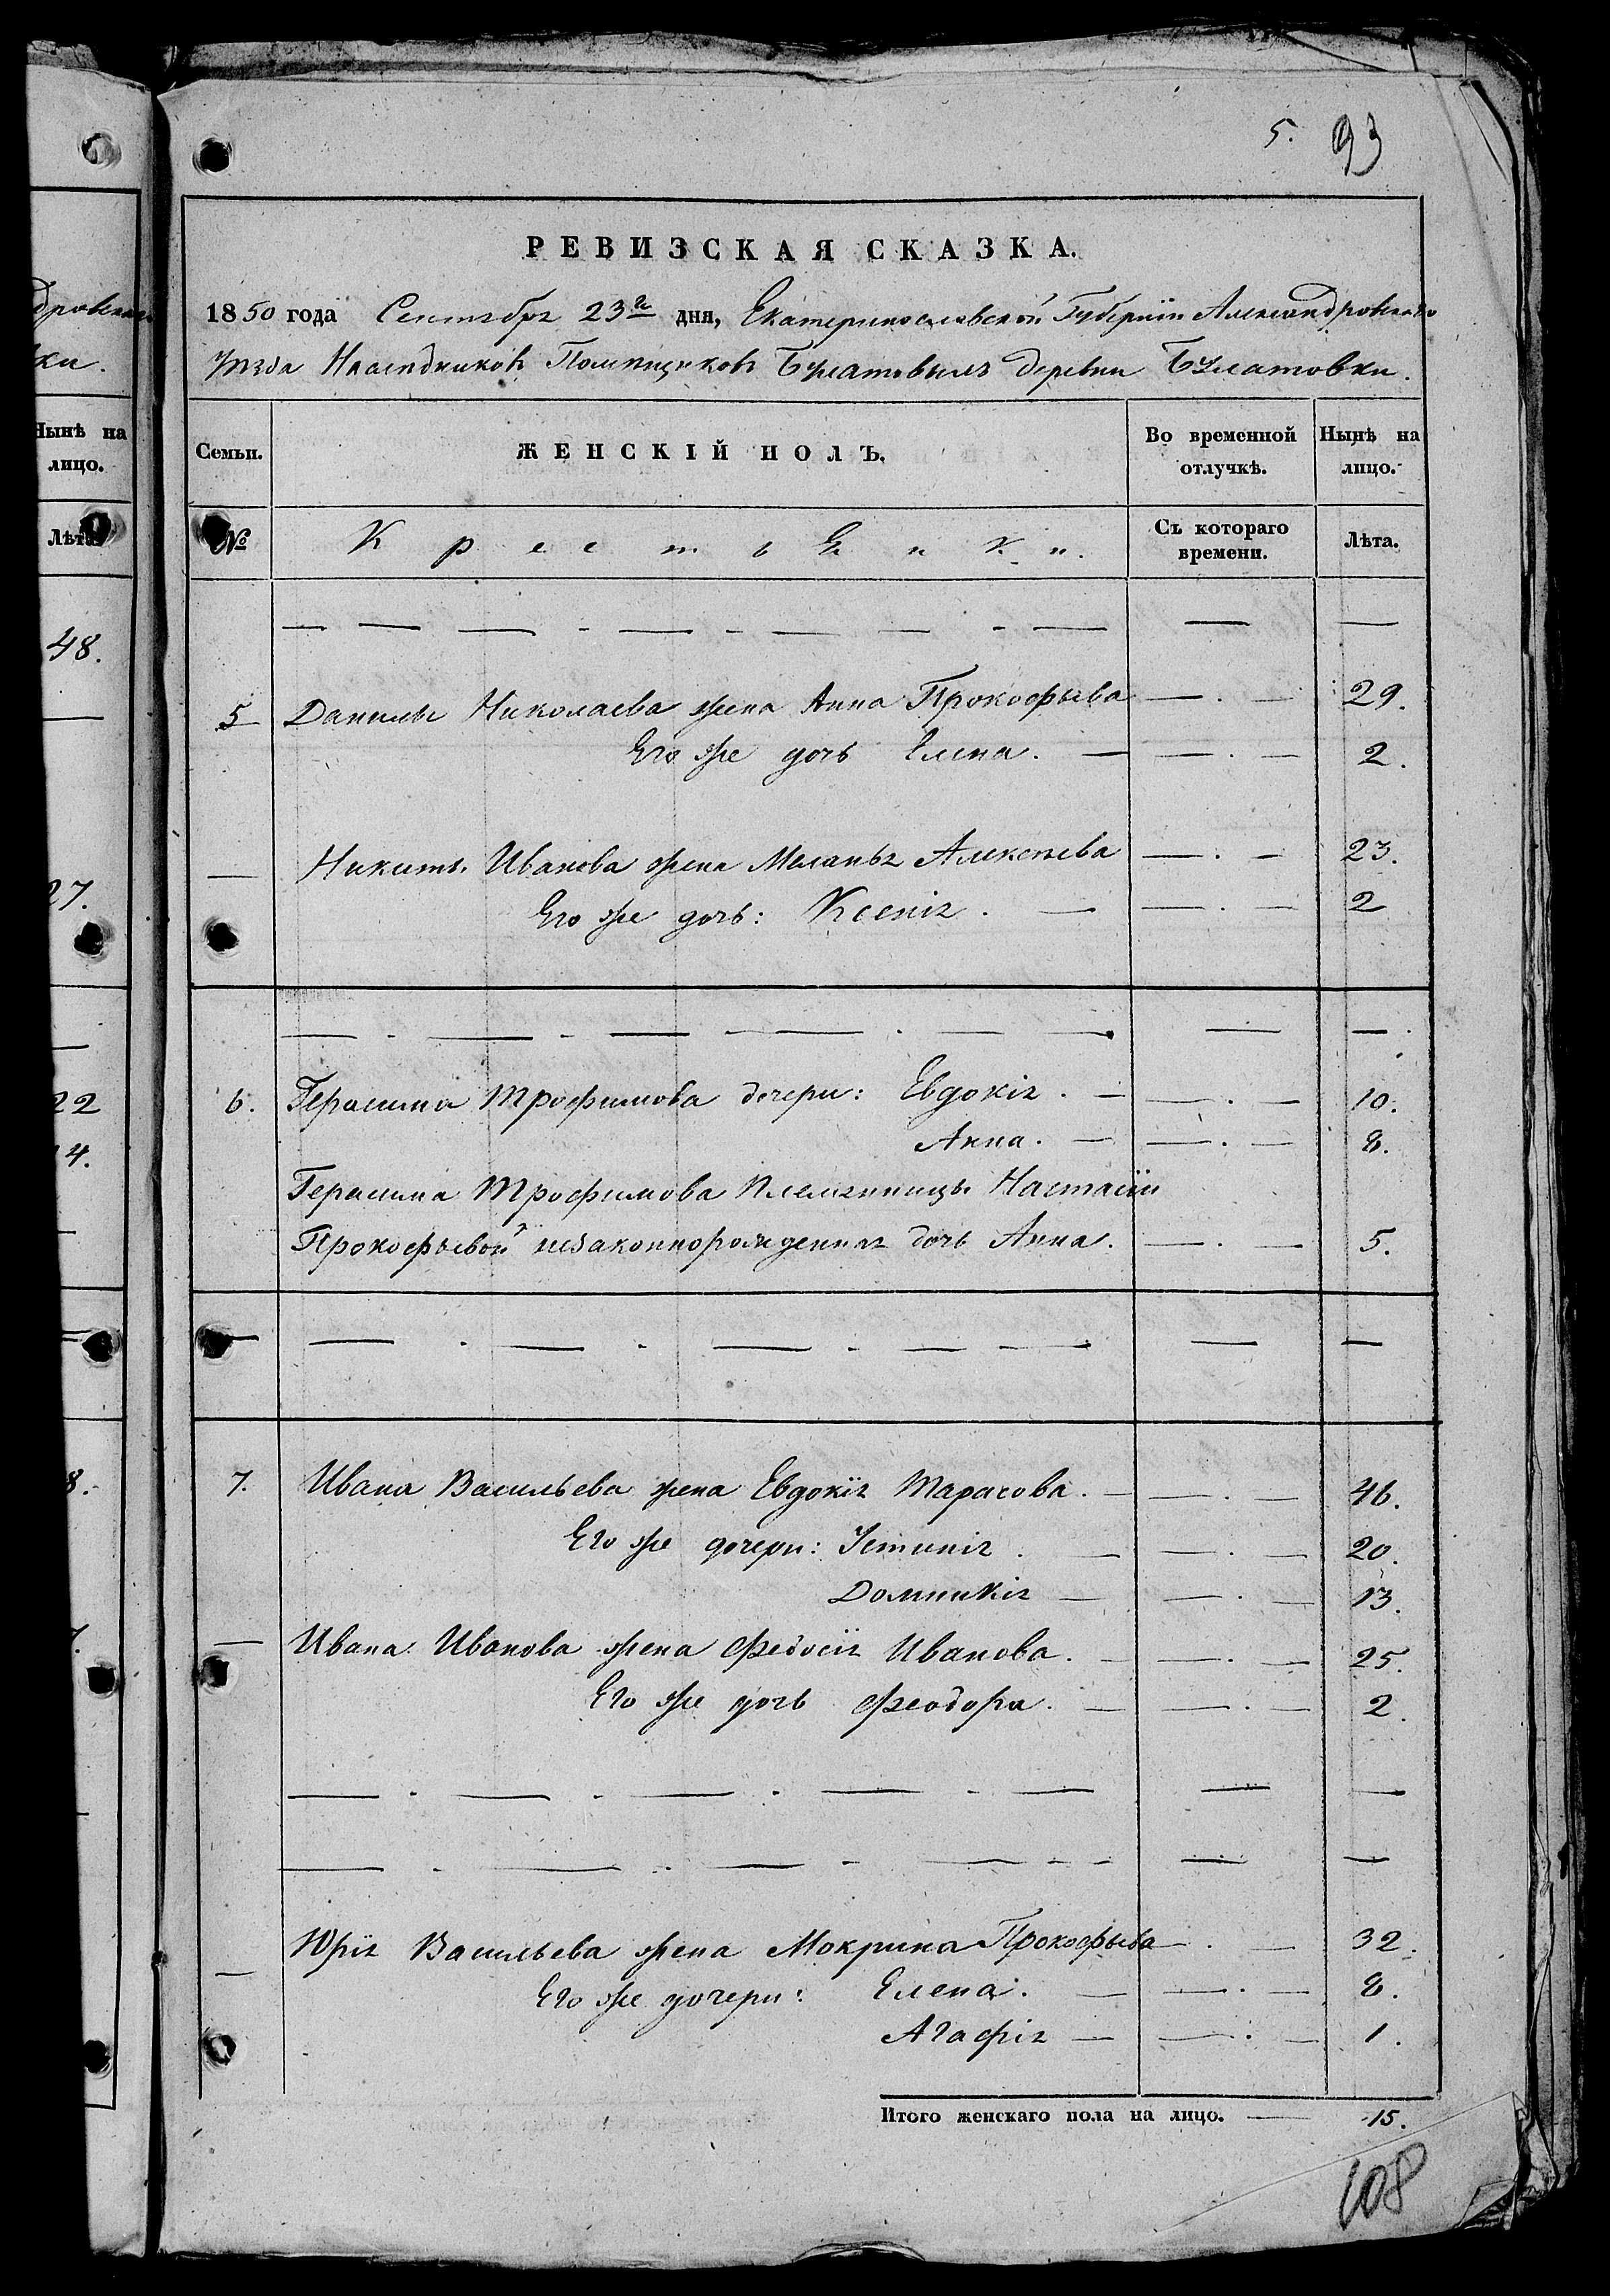 5. 93
РЕВИЗСКАЯ СКАЗКА.
1850 года Сентября 23го дня, Екатеринославской Губерніи Александровскаго
Уѣзда Наследниковъ Помѣщиковъ Булатовыхъ деревни Булатовки.
дровскаго
ки.
Нынѣ на лицо.
Лѣта.
48.
27.
22
14.
8.
Семьи. ЖЕНСКІЙ ПОЛЪ. Во временной отлучкѣ. Нынѣ на лицо.
№ Крестьянки. Съ котораго времени. Лѣта.
— — — — — —
5 Данилы Николаева жена Анна Прокофьева — . — 29.
Его же дочь Елена. — — . — 2.
— Никиты Иванова жена Меланья Алексѣева — . — 23.
Его же дочь: Ксенія. — — . — 2
— — — — — —
6. Герасима Трофимова дочери: Евдокія. — — . — 10.
Анна. — — . — 8.
Герасима Трофимова племянницы Настасіи
Прокофьевой незаконнорожденная дочь Анна. — . — 5.
— — — — — —
7. Ивана Васильева жена Евдокія Тарасова. — — . — 46.
Его же дочери: Устинія. — — . — 20.
Домникія — — . — 13.
— Ивана Иванова жена Федосія Иванова. — — . — 25.
Его же дочь Феодора. — — . — 2.
— — — — — —
— — — — — —
— Юрія Васильева жена Мокрина Прокофьева — . — 32.
Его же дочери: Елена. — — . — 8.
Агафія — — . — 1.
Итого женскаго пола на лицо. — 15.
108